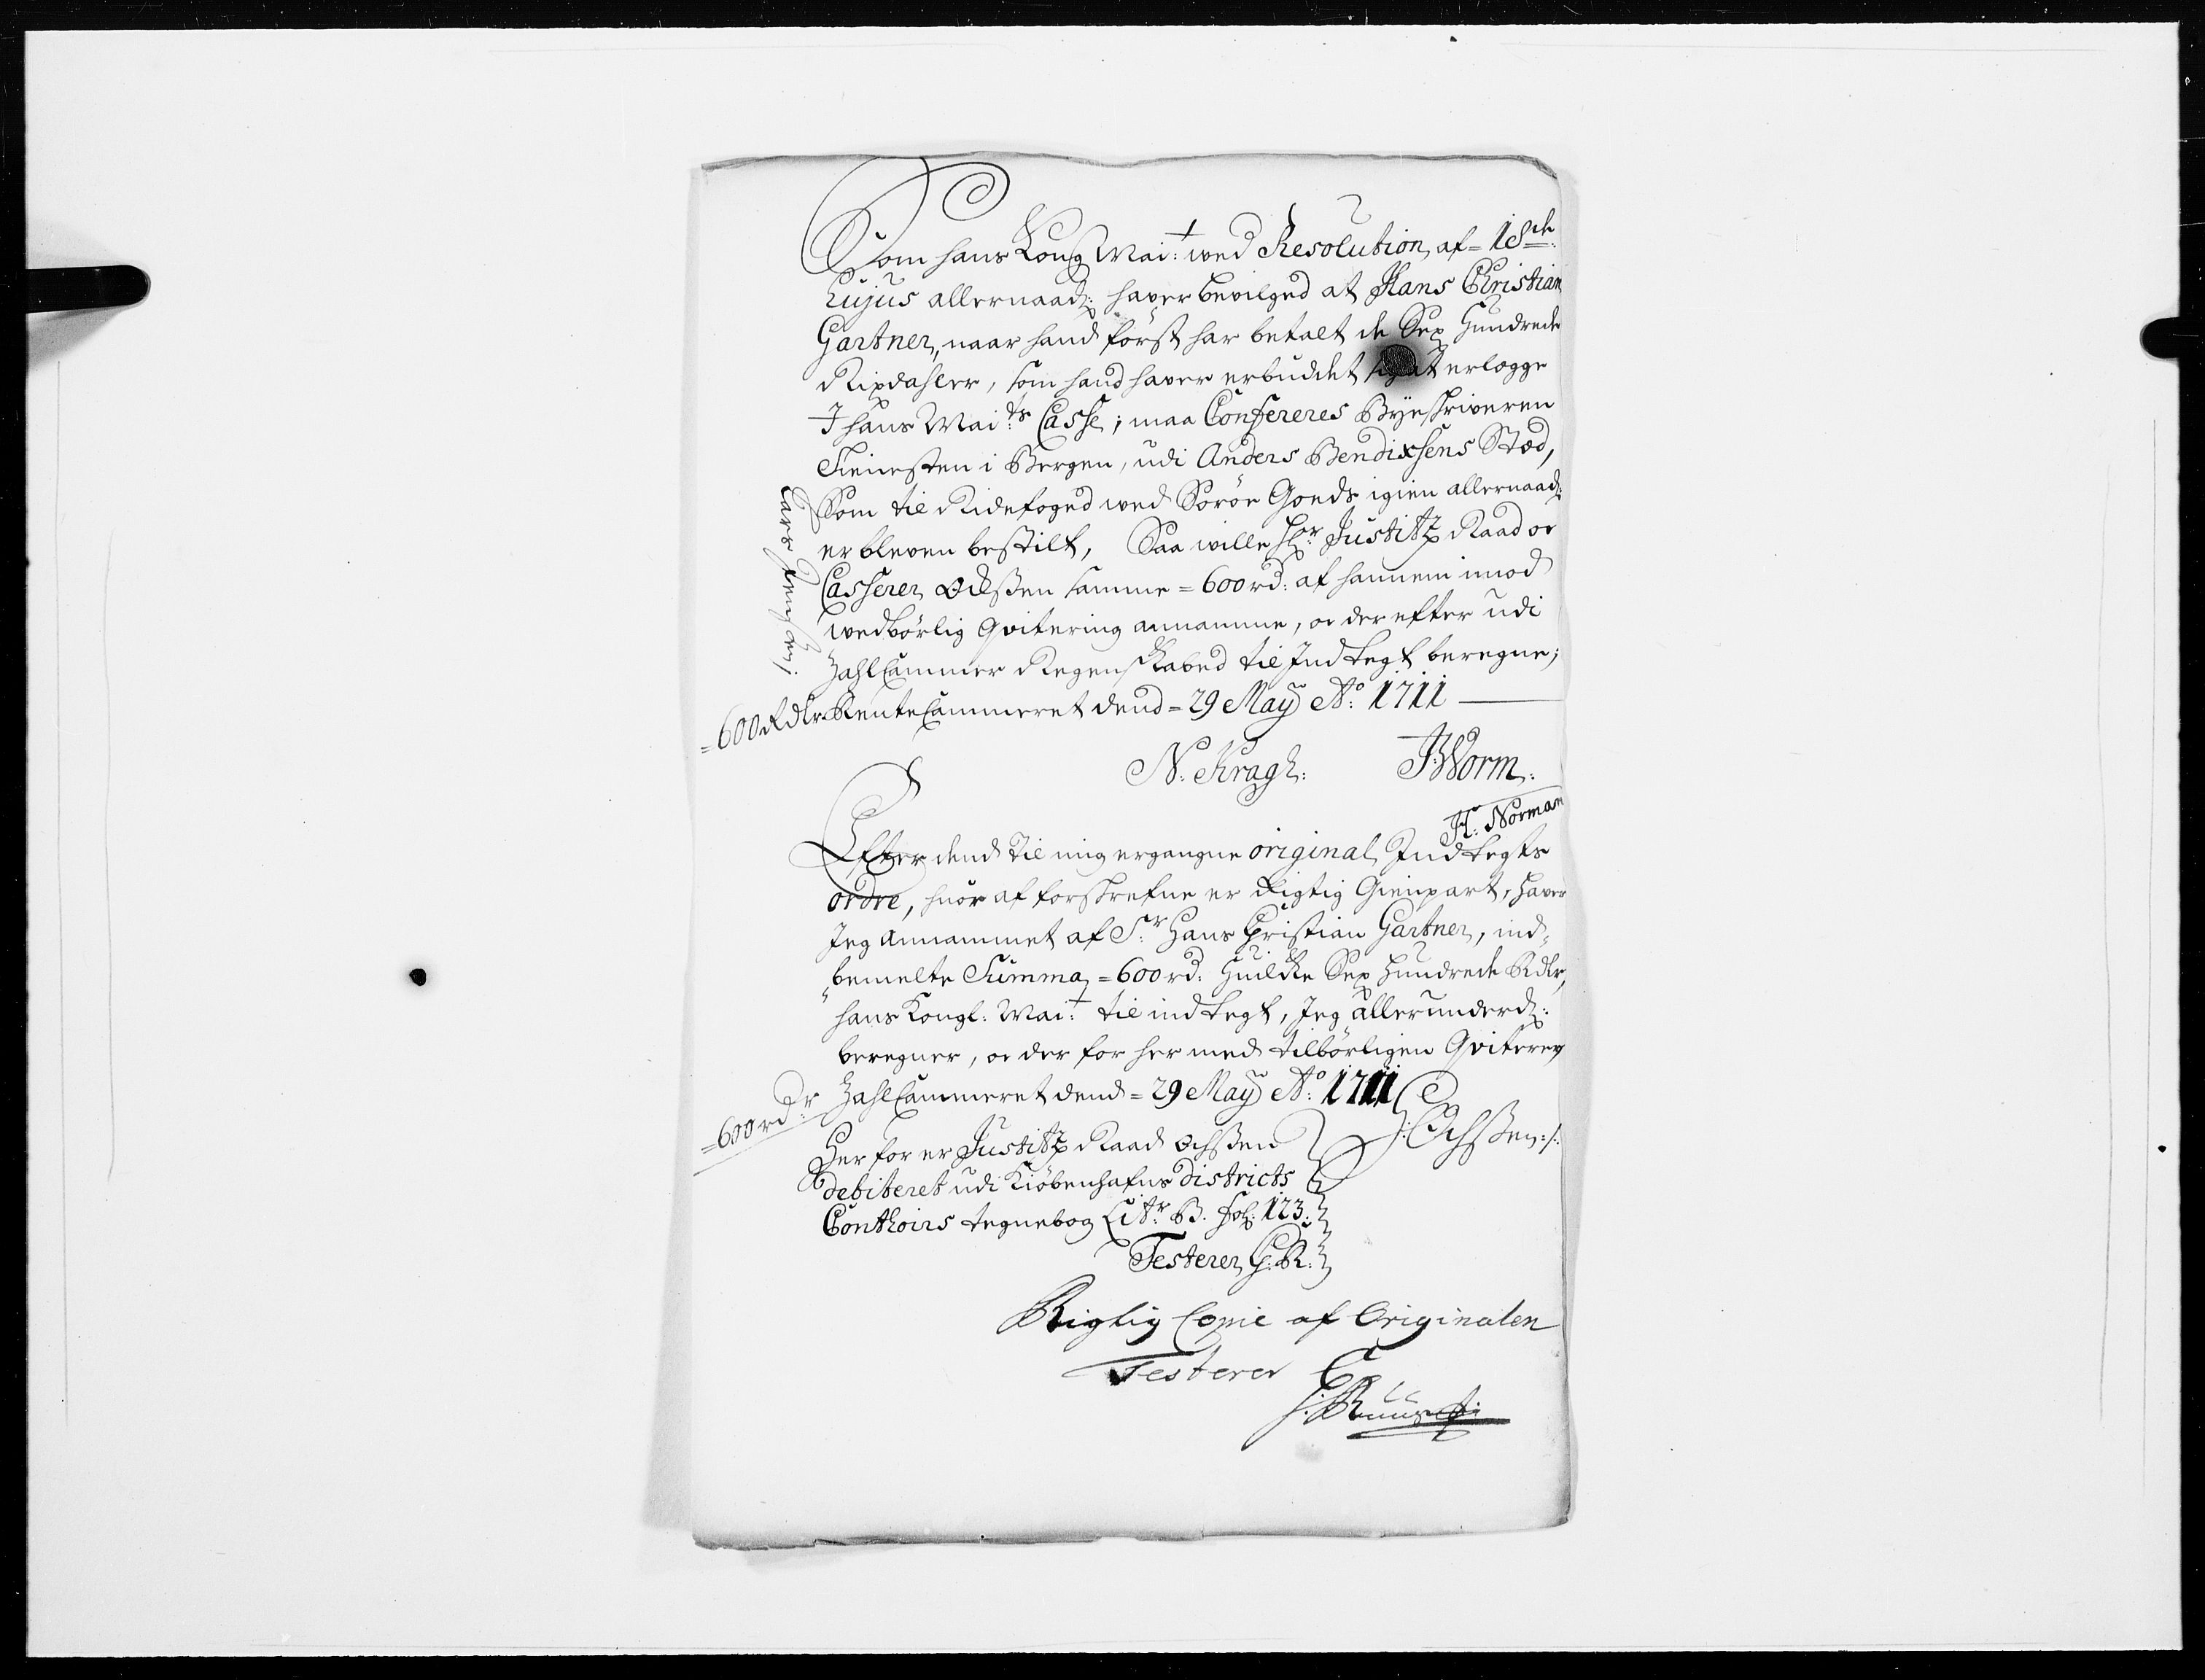 Som hans Kong Mai:t wed Resolution af=18de:
hujus allernaadg: hafver bevilged at Hans Christian
Gartner, naar hand först har betalt de Sex Hundrede
Rixdahler, som hand hafver erbuddet sig at erlegge
I hans Mai:ts Casse; maa Confereres Byeskriver
Tienesten i Bergen, udi Anders Bendixsens Stæd,
Som til Ridefoged wed Soröe Goeds igien allernaadg:
er bleven bestilt, Saa wille Hr: Justitz Raad oc
Casserer Ochssen samme =600 rd: af hannem imod
wedbörlig Qvitering annamme, oc der efter udi
Zahlkammer Regenskabed til Indtegt beregne;
RenteCammeret dend=29 May Ao: 1711
=600 Rdlr
N: Kragh: J Worm:
H: Norman
Efter dend til mig ergangne original Indtegts
ordre, huor af forskrefne er Rigtig Gienpart, hafver
Jeg annammet af Sr: Hans Christian Gartner, ind-
bemelte Summa =600 rd: Huilke Sex Hundrede Rdlr,
hans Kongl: Mai:t til indtegt, Jeg allerunderdg:
beregner, oc der for her med tilbörligen Qviterer
Zahlkammeret dend=29 May Ao: 1711
=600 rdr:
:Ochssen:/:
Her for er Justitz Raad Ochssen
debiteret udi Kiöbenhafns districts
Conthoirs tegnebog Litr: B. fol: 123:
Testerer G: R:
Rigtig Copie af Originalen
Testerer